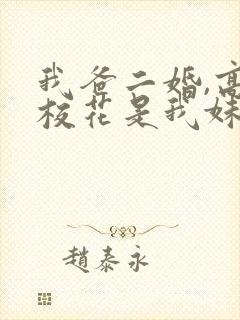 我爸二婚,高
校花是我妹
趙泰永